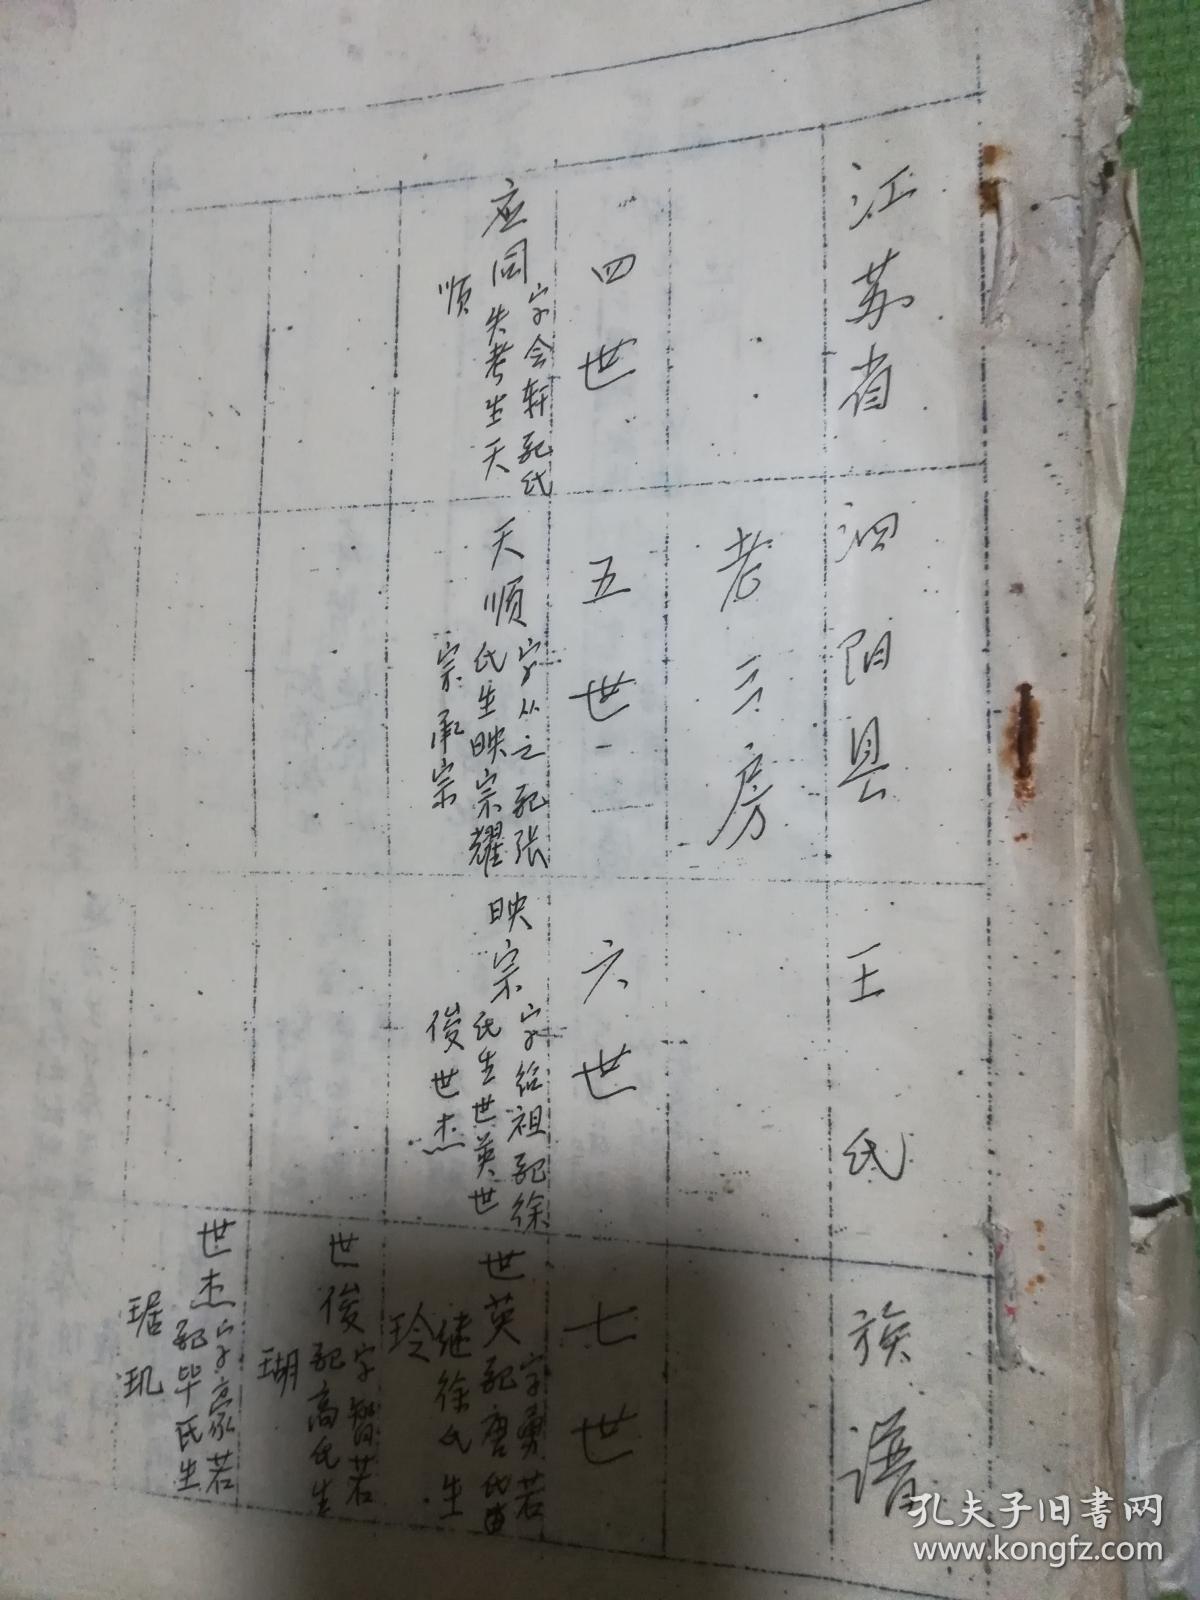 江苏省泗阳县王氏族谱
老三房
四世
五世
六世
七世
应同
字会轩配氏
失考生天
顺
天顺
字从之配张
氏生映宗耀
宗承宗
映宗
字绍祖配徐
氏生世英世
俊世杰
世英
字勇若
配唐氏
继徐氏生
玲
世俊
字智若
配高氏生
瑚
世杰
字豪若
配毕氏生
琚玑
孔夫子旧书网
www.kongfz.com